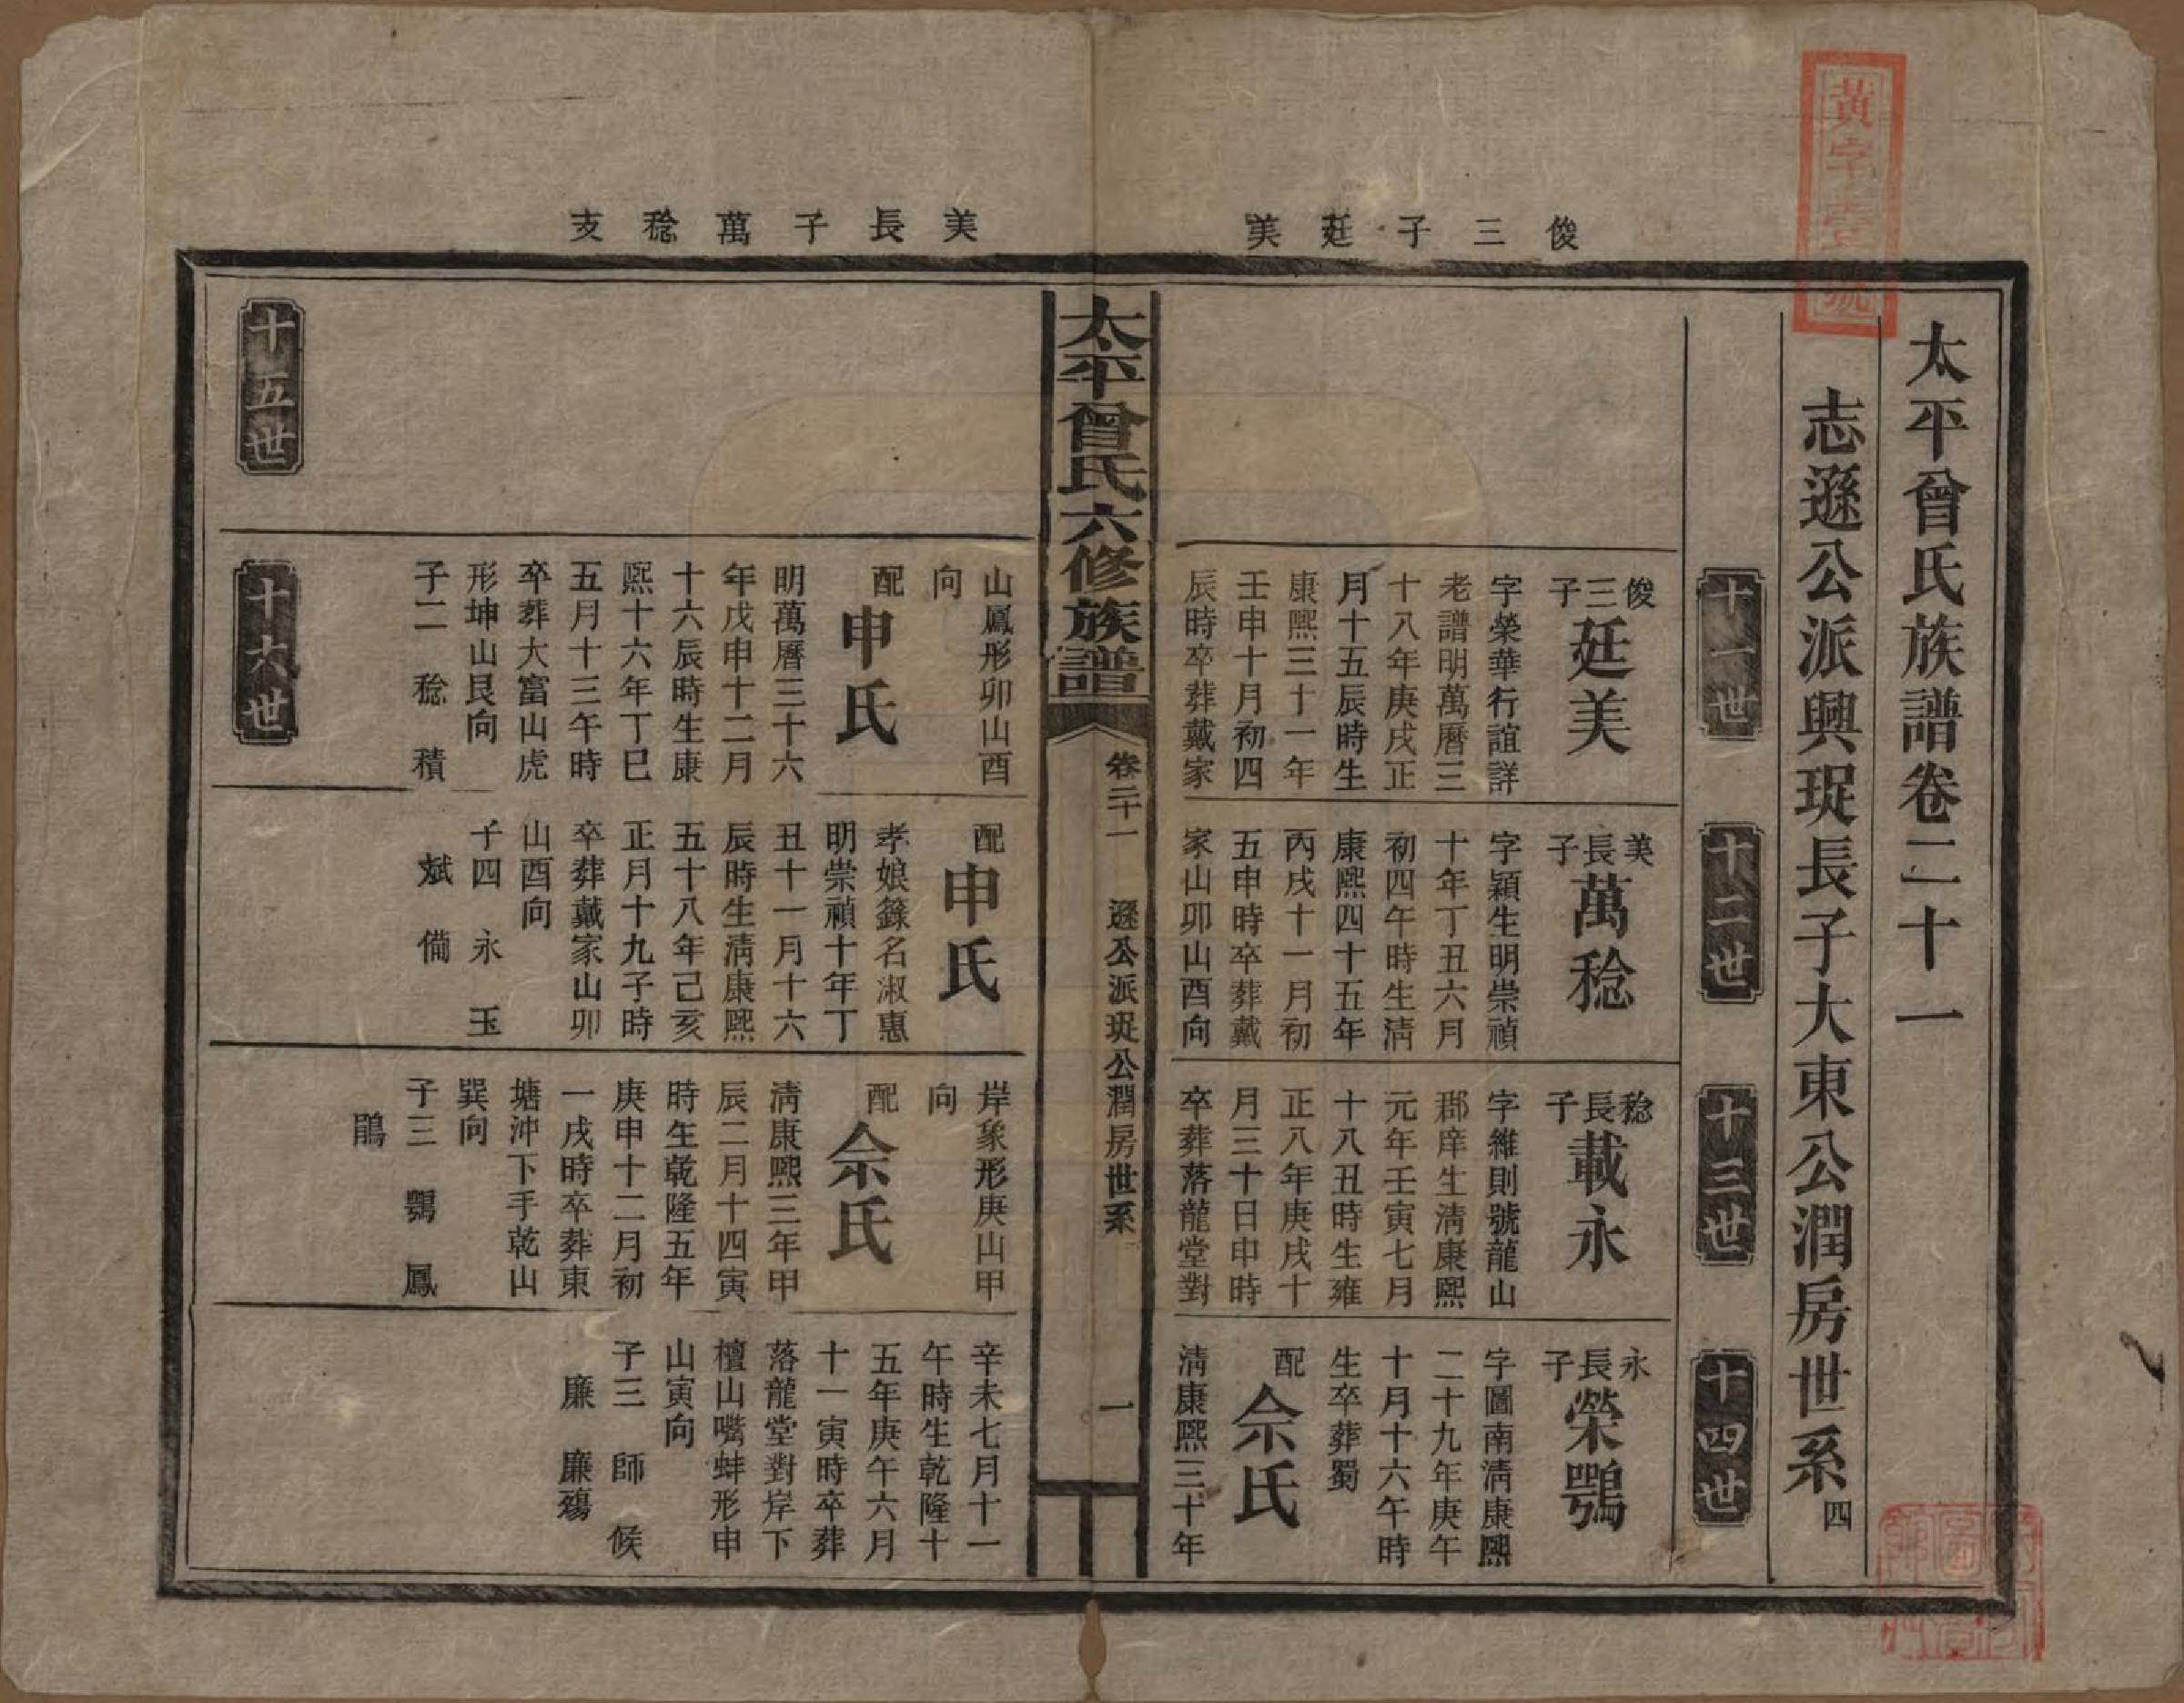 黃字壹號
俊三子廷美
美長子萬稔支
太平曾氏族譜卷二十一
志遜公派興珽長子大東公潤房世系四
十一世
十二世
十三世
十四世
俊三子廷美
字榮華行誼詳
老譜明萬曆三
十八年庚戌正
月十五辰時生
康熙三十一年
壬申十月初四
辰時卒葬戴家
山鳳形卯山酉
向
配申氏
明萬曆三十六
年戊申十二月
十六辰時生康
熙十六年丁巳
五月十三午時
卒葬大富山虎
形坤山艮向
子二 稔 積
美長子萬稔
字穎生明崇禎
十年丁丑六月
初四午時生淸
康熙四十五年
丙戌十一月初
五申時卒葬戴
家山卯山酉向
配申氏
孝娘籙名淑惠
明崇禎十年丁
丑十一月十六
辰時生淸康熙
五十八年己亥
正月十九子時
卒葬戴家山卯
山酉向
子四 永 玉
斌 備
稔長子載永
字維則號龍山
郡庠生淸康熙
元年壬寅七月
十八丑時生雍
正八年庚戌十
月三十日申時
卒葬落龍堂對
岸象形庚山甲
向
配佘氏
淸康熙三年甲
辰二月十四寅
時生乾隆五年
庚申十二月初
一戌時卒葬東
塘沖下手乾山
巽向
子三 鶚 鳳
鵑
永長子榮鶚
字圖南淸康熙
二十九年庚午
十月十六午時
生卒葬蜀
配佘氏
淸康熙三十年
辛未七月十一
午時生乾隆十
五年庚午六月
十一寅時卒葬
落龍堂對岸下
檀山嘴蚌形申
山寅向
子三 師 候
廉 廉殤
太平曾氏六修族譜
卷二十一
遜公派珽公潤房世系
一
十五世
十六世